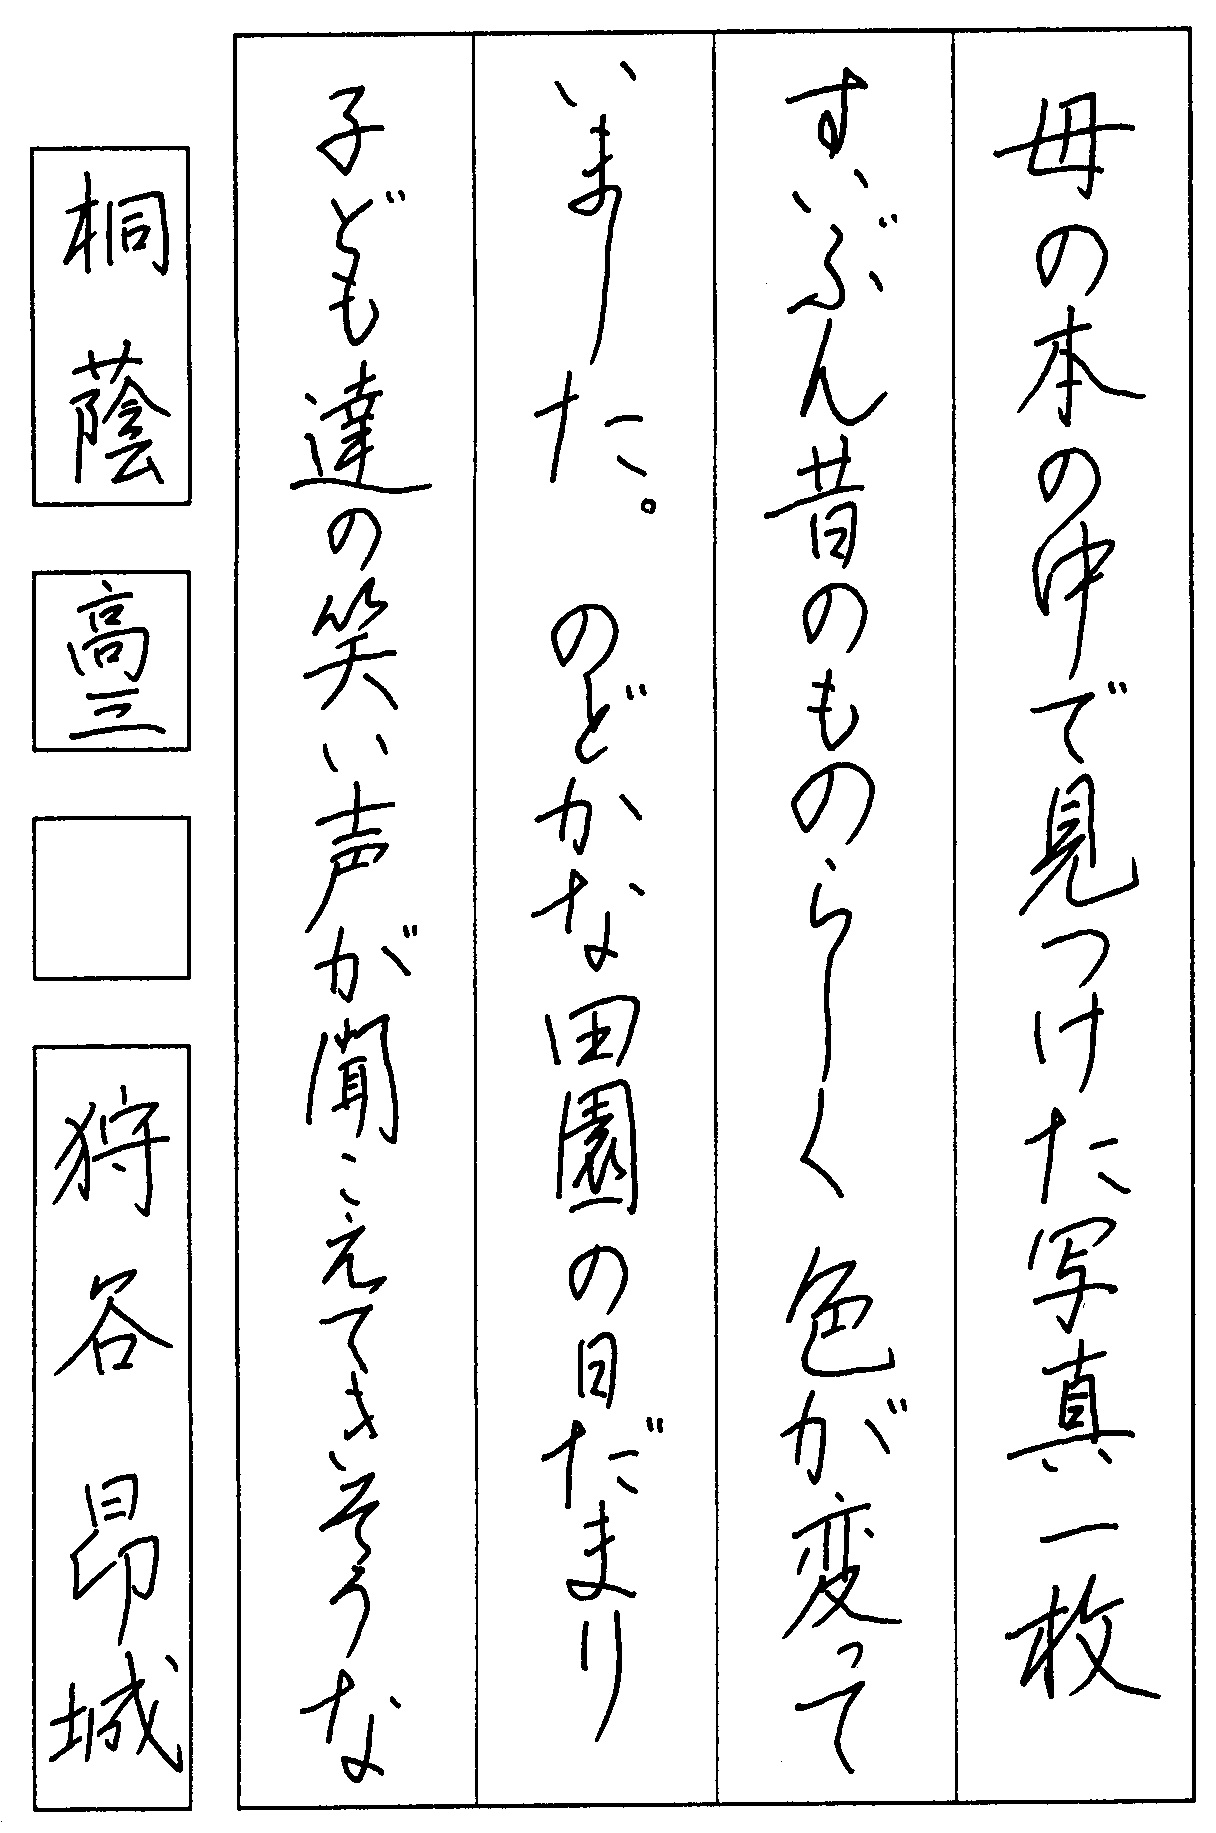 母の本の中で見つけた写真一枚
ずいぶん昔のものらしく色が変って
いました。のどかな田園の日だまり
子ども達の笑い声が聞こえてきそうな
桐蔭
高三
狩谷昂城